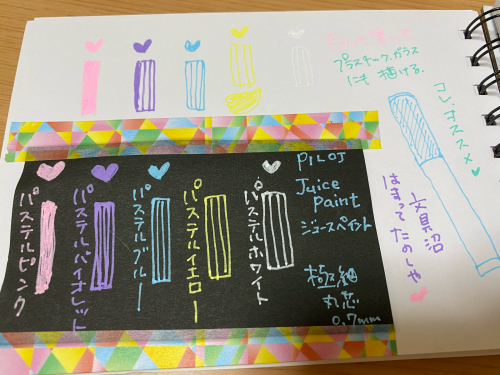 プラスチック、ガラス
にも描ける。
コレ、オススメ
文具沼
はまってたのしや
PILOT
Juice
paint
ジュースペイント
極細
丸芯
0.7mm
パステルホワイト
パステルイエロー
パステルブルー
パステルバイオレット
パステルピンク